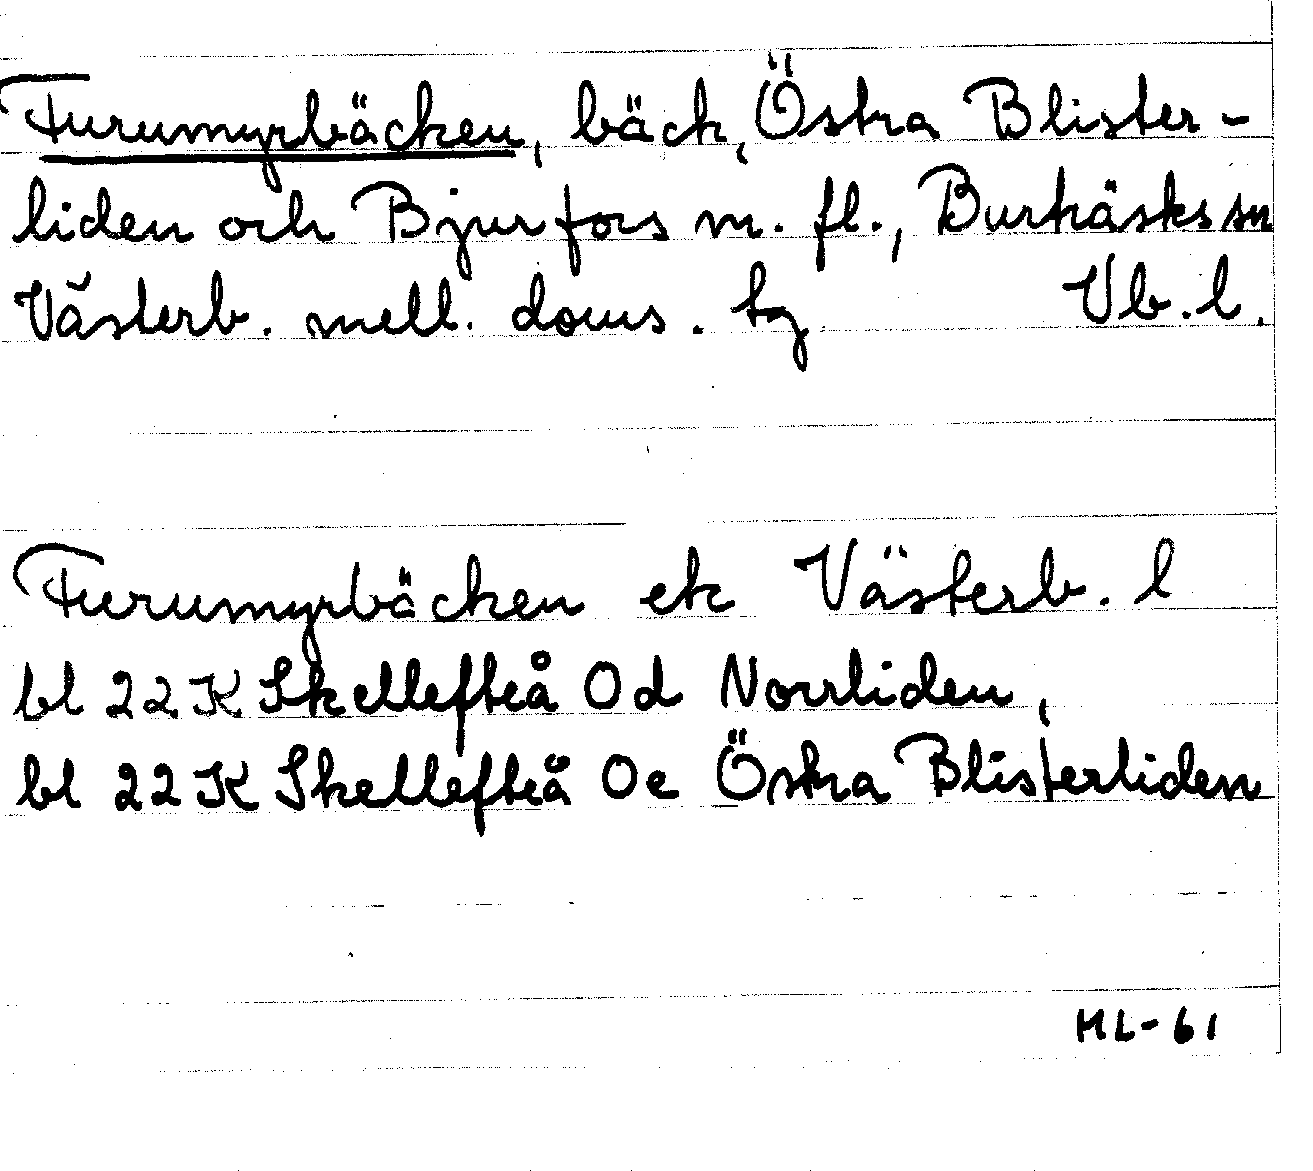 Furumyrbäcken, bäck, Östra Blister-
liden och Bjurfors m. fl., Burträsks sn
Västerb. mell. doms. tg Vb. l.
Furumyrbäcken ek Västerb. l
bl 22K Skellefteå 0d Norrliden,
bl 22K Skellefteå 0e Östra Blisterliden
HL-61